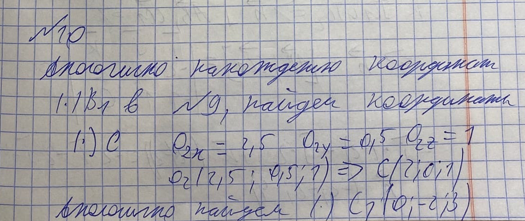 №10
Аналогично нахождению координат
(·) B₁ в №9, найдем координаты
(·) C O₂ₓ = 2,5 O₂y = 0,5 O₂z = 1
O₂(2,5; 0,5; 1) => C(2; 0; 1)
Аналогично найдем (·) C₁(0; -2; 3)